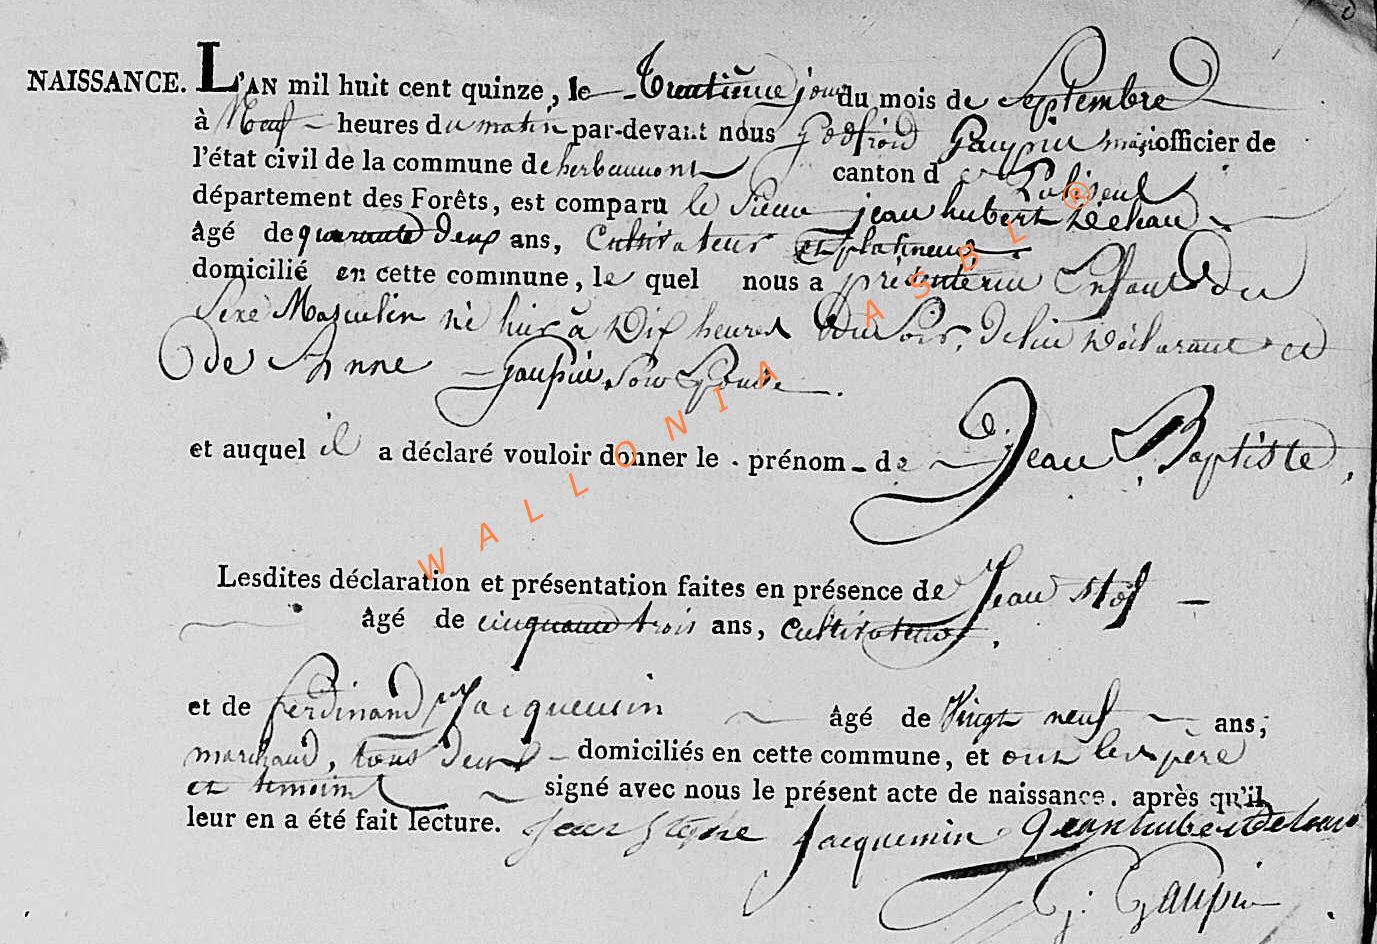 NAISSANCE. L'AN mil huit cent quinze, le trentieme jour du mois de Septembre
à Neuf heures du matin par-devant nous godfroid Gaupin maire officier de
l'état civil de la commune de herbeumont canton de Paliseul
département des Forêts, est comparu le Sieur jean hubert Dehau
âgé de quarante deux ans, Cultivateur et platineur
domicilié en cette commune, le quel nous a présenté un Enfant du
Sexe Masculin né hier à Dix heures du Soir, de lui Déclarant et
de Anne Gaupin, Son Epouse.
et auquel il a déclaré vouloir donner le prénom de Jean Baptiste,
Lesdites déclaration et présentation faites en présence de Jean
âgé de cinquante trois ans, cultivateur,
et de ferdinand Jacquemin âgé de Vingt neuf ans;
marchand, tous deux domiciliés en cette commune, et ont les père
et temoins signé avec nous le présent acte de naissance. après qu'il
leur en a été fait lecture. Jean Jacquemin Jean hubert
G: Gaupin
WALLONIA ASBL ®